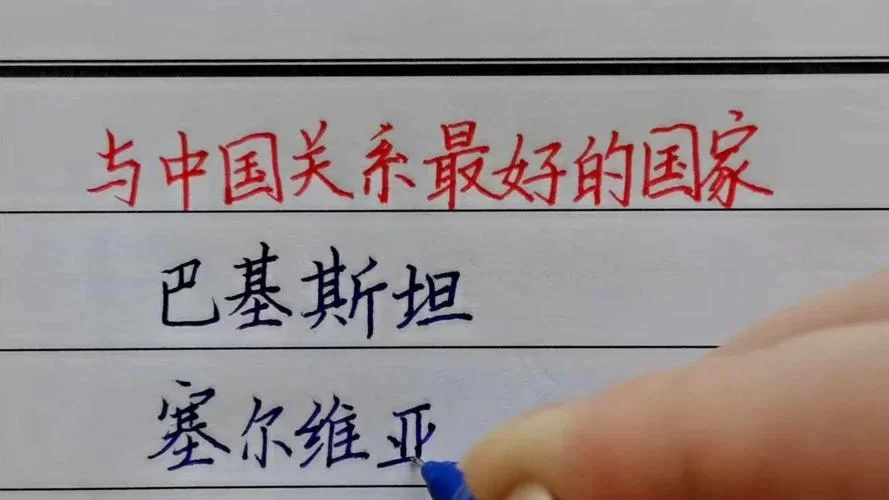 与中国关系最好的国家
巴基斯坦
塞尔维亚